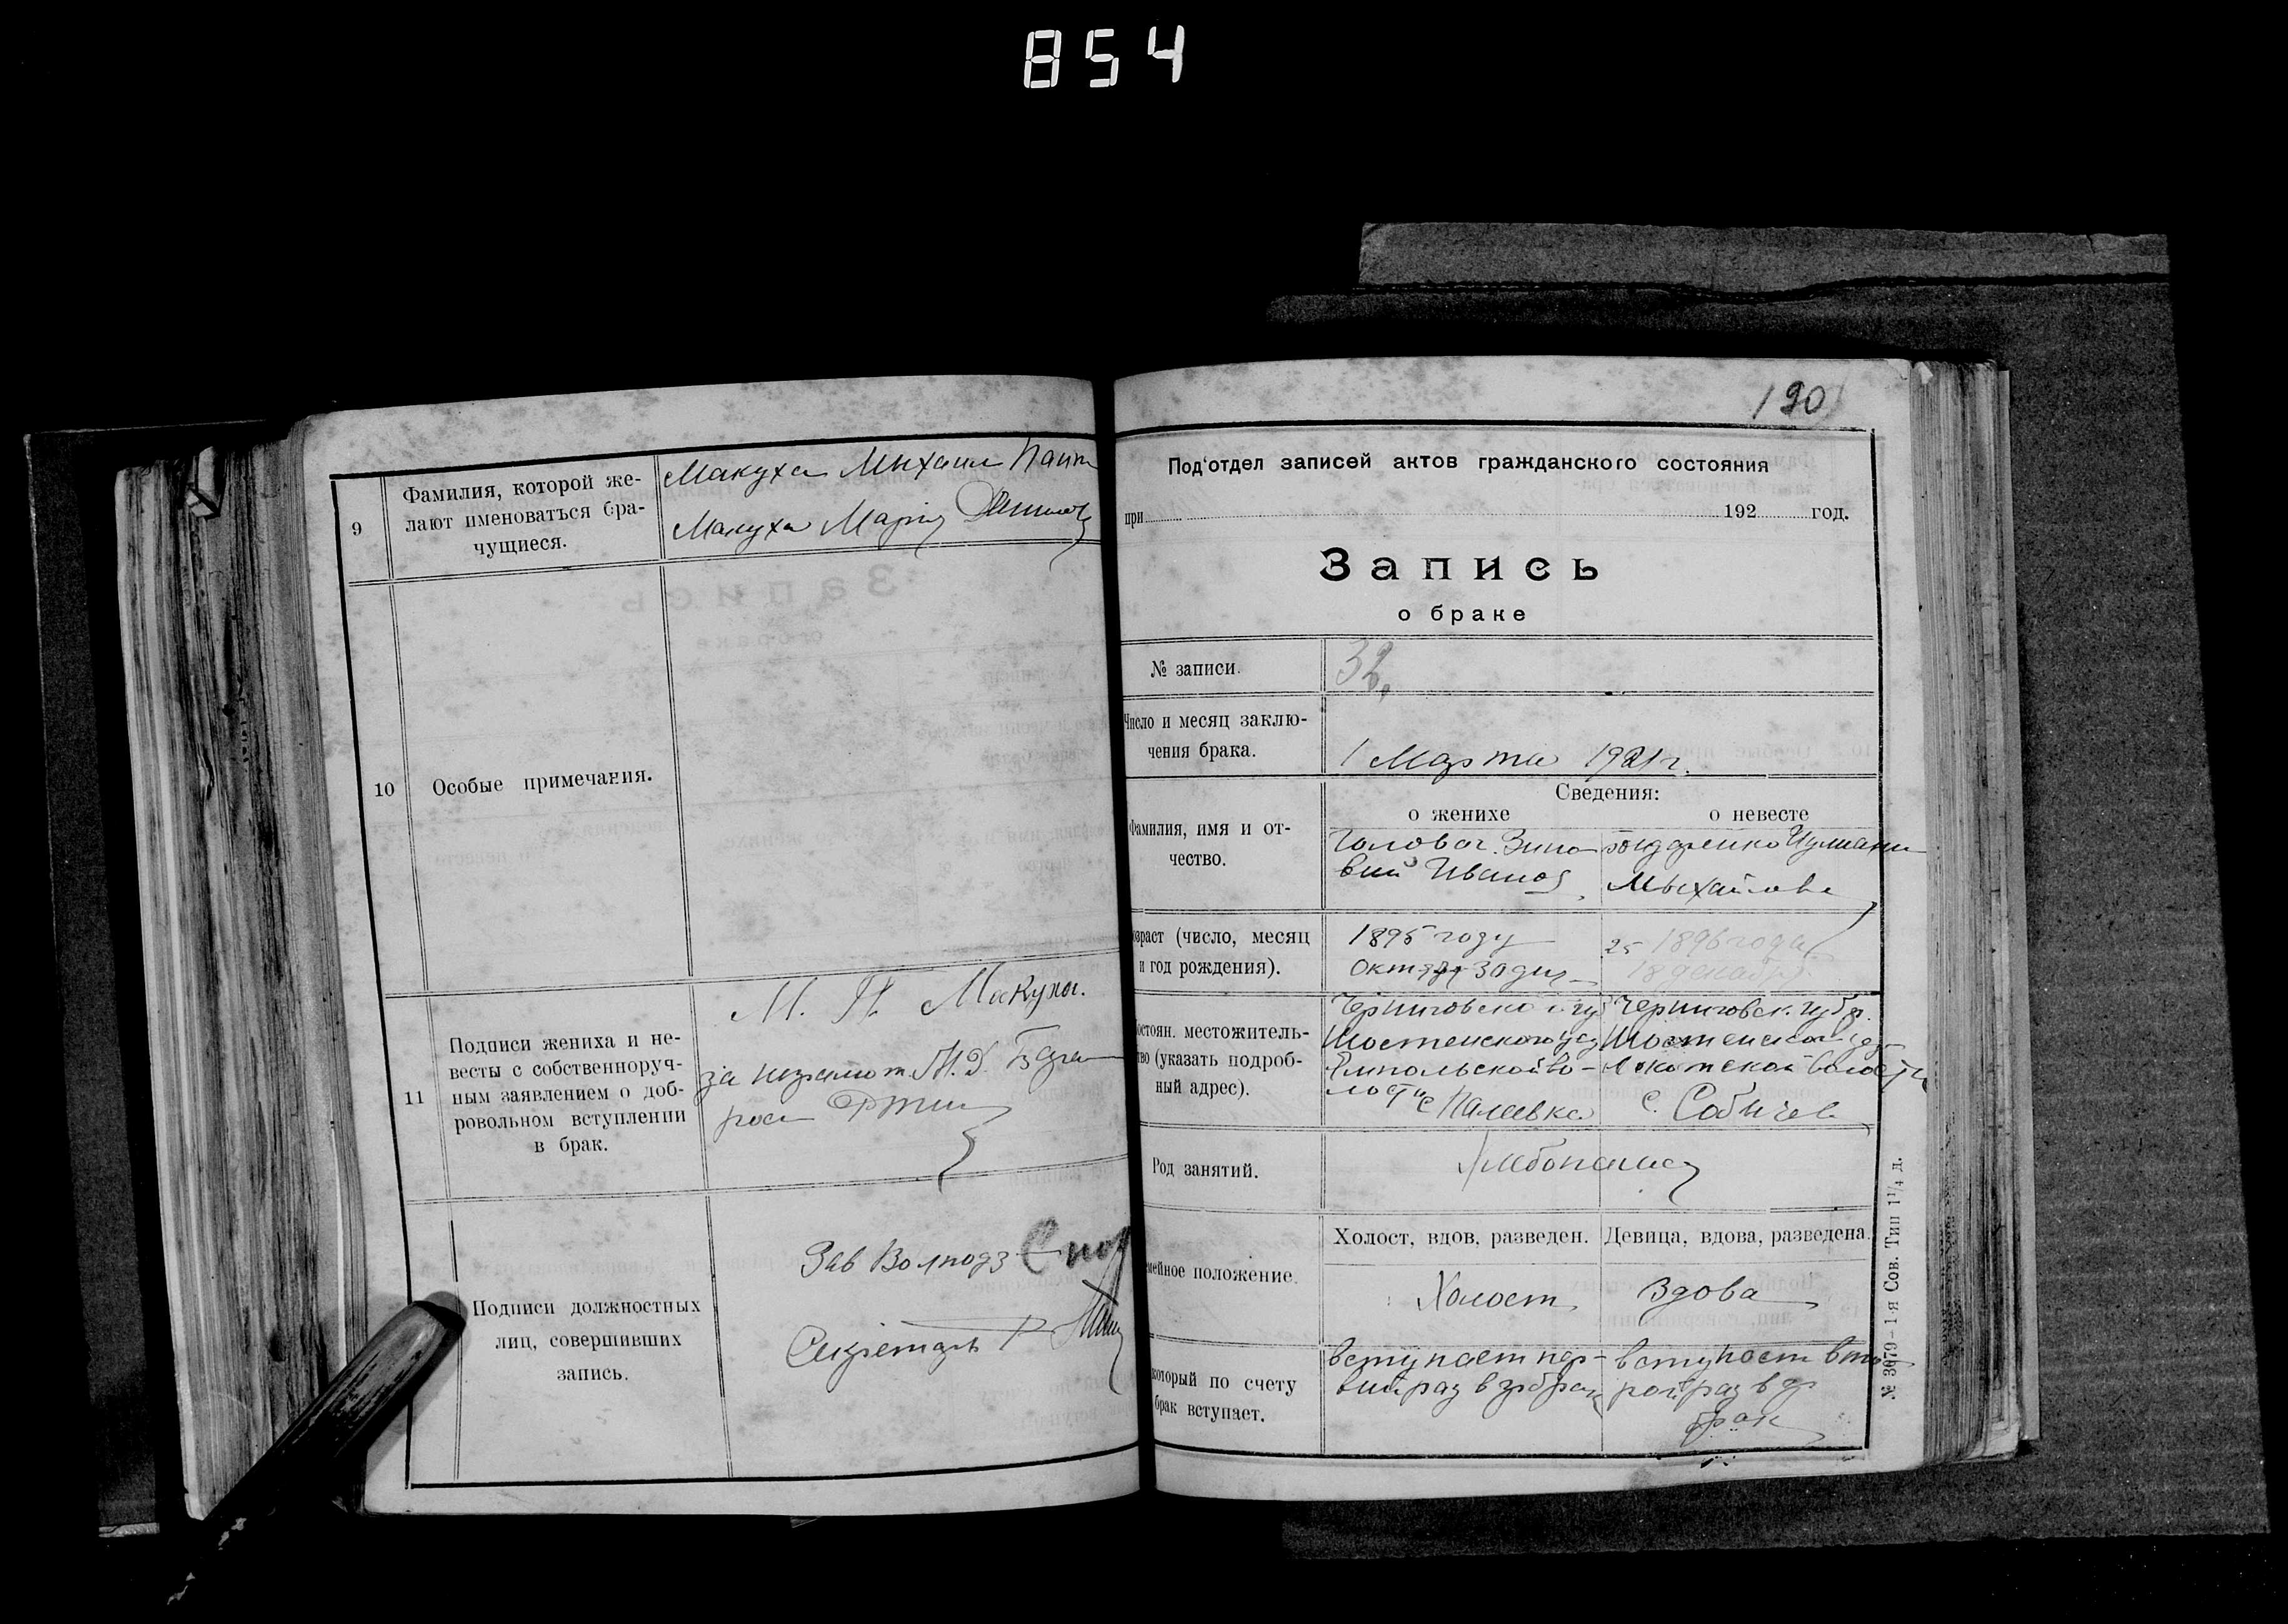 854
9
Фамилия, которой же-
лают именоваться бра-
чущиеся.
Макуха Михаил
Макуха Мария
10
Особые примечания.
11
Подписи жениха и не-
весты с собственноруч-
ным заявлением о доб-
ровольном вступлении
в брак.
М. П. Макуха.
за неграмот. М. Д.
Подписи должностных
лиц, совершивших
запись.
Зав Волподз
Секретарь
190
Под'отдел записей актов гражданского состояния
при 192 год.
Запись
о браке
№ записи.
32.
Число и месяц заклю-
чения брака.
1 Марта 1921 г.
Сведения:
о женихе
о невесте
Фамилия, имя и от-
чество.
Головач Зино
вий Иванов
Бондаренко
Мыхайлова
возраст (число, месяц
и год рождения).
1895 году
Октяб 30 дня
25 1896 года
18 декабря
Постоян. местожитель-
ство (указать подроб-
ный адрес).
Черниговской губ
Шостенского уез
Ямпольской во-
лости с Палеевка
Черниговск. губер.
Шостенского уез
волости
с. Собичев
Род занятий.
Хлебопашец
Семейное положение.
Холост, вдов, разведен.
Девица, вдова, разведена.
Холост
Вдова
который по счету
брак вступает.
вступает пер-
вий раз в брак
вступает вто
рой раз в
брак
№ 3079-1-я Сов. Тип 1¼ д.